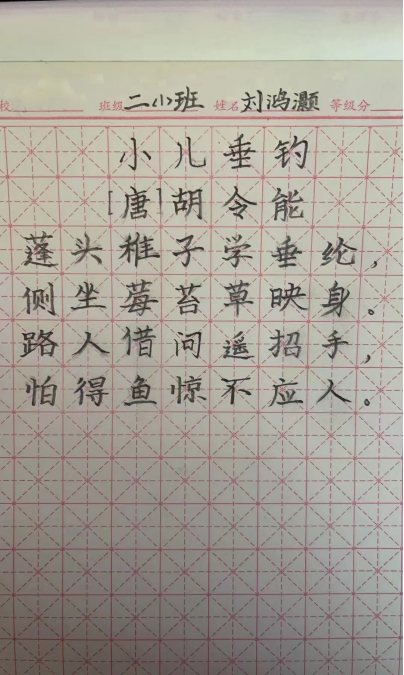 校 班级 二小班 姓名 刘鸿灏 等级分
小儿垂钓
[唐]胡令能
蓬头稚子学垂纶，
侧坐莓苔草映身。
路人借问遥招手，
怕得鱼惊不应人。